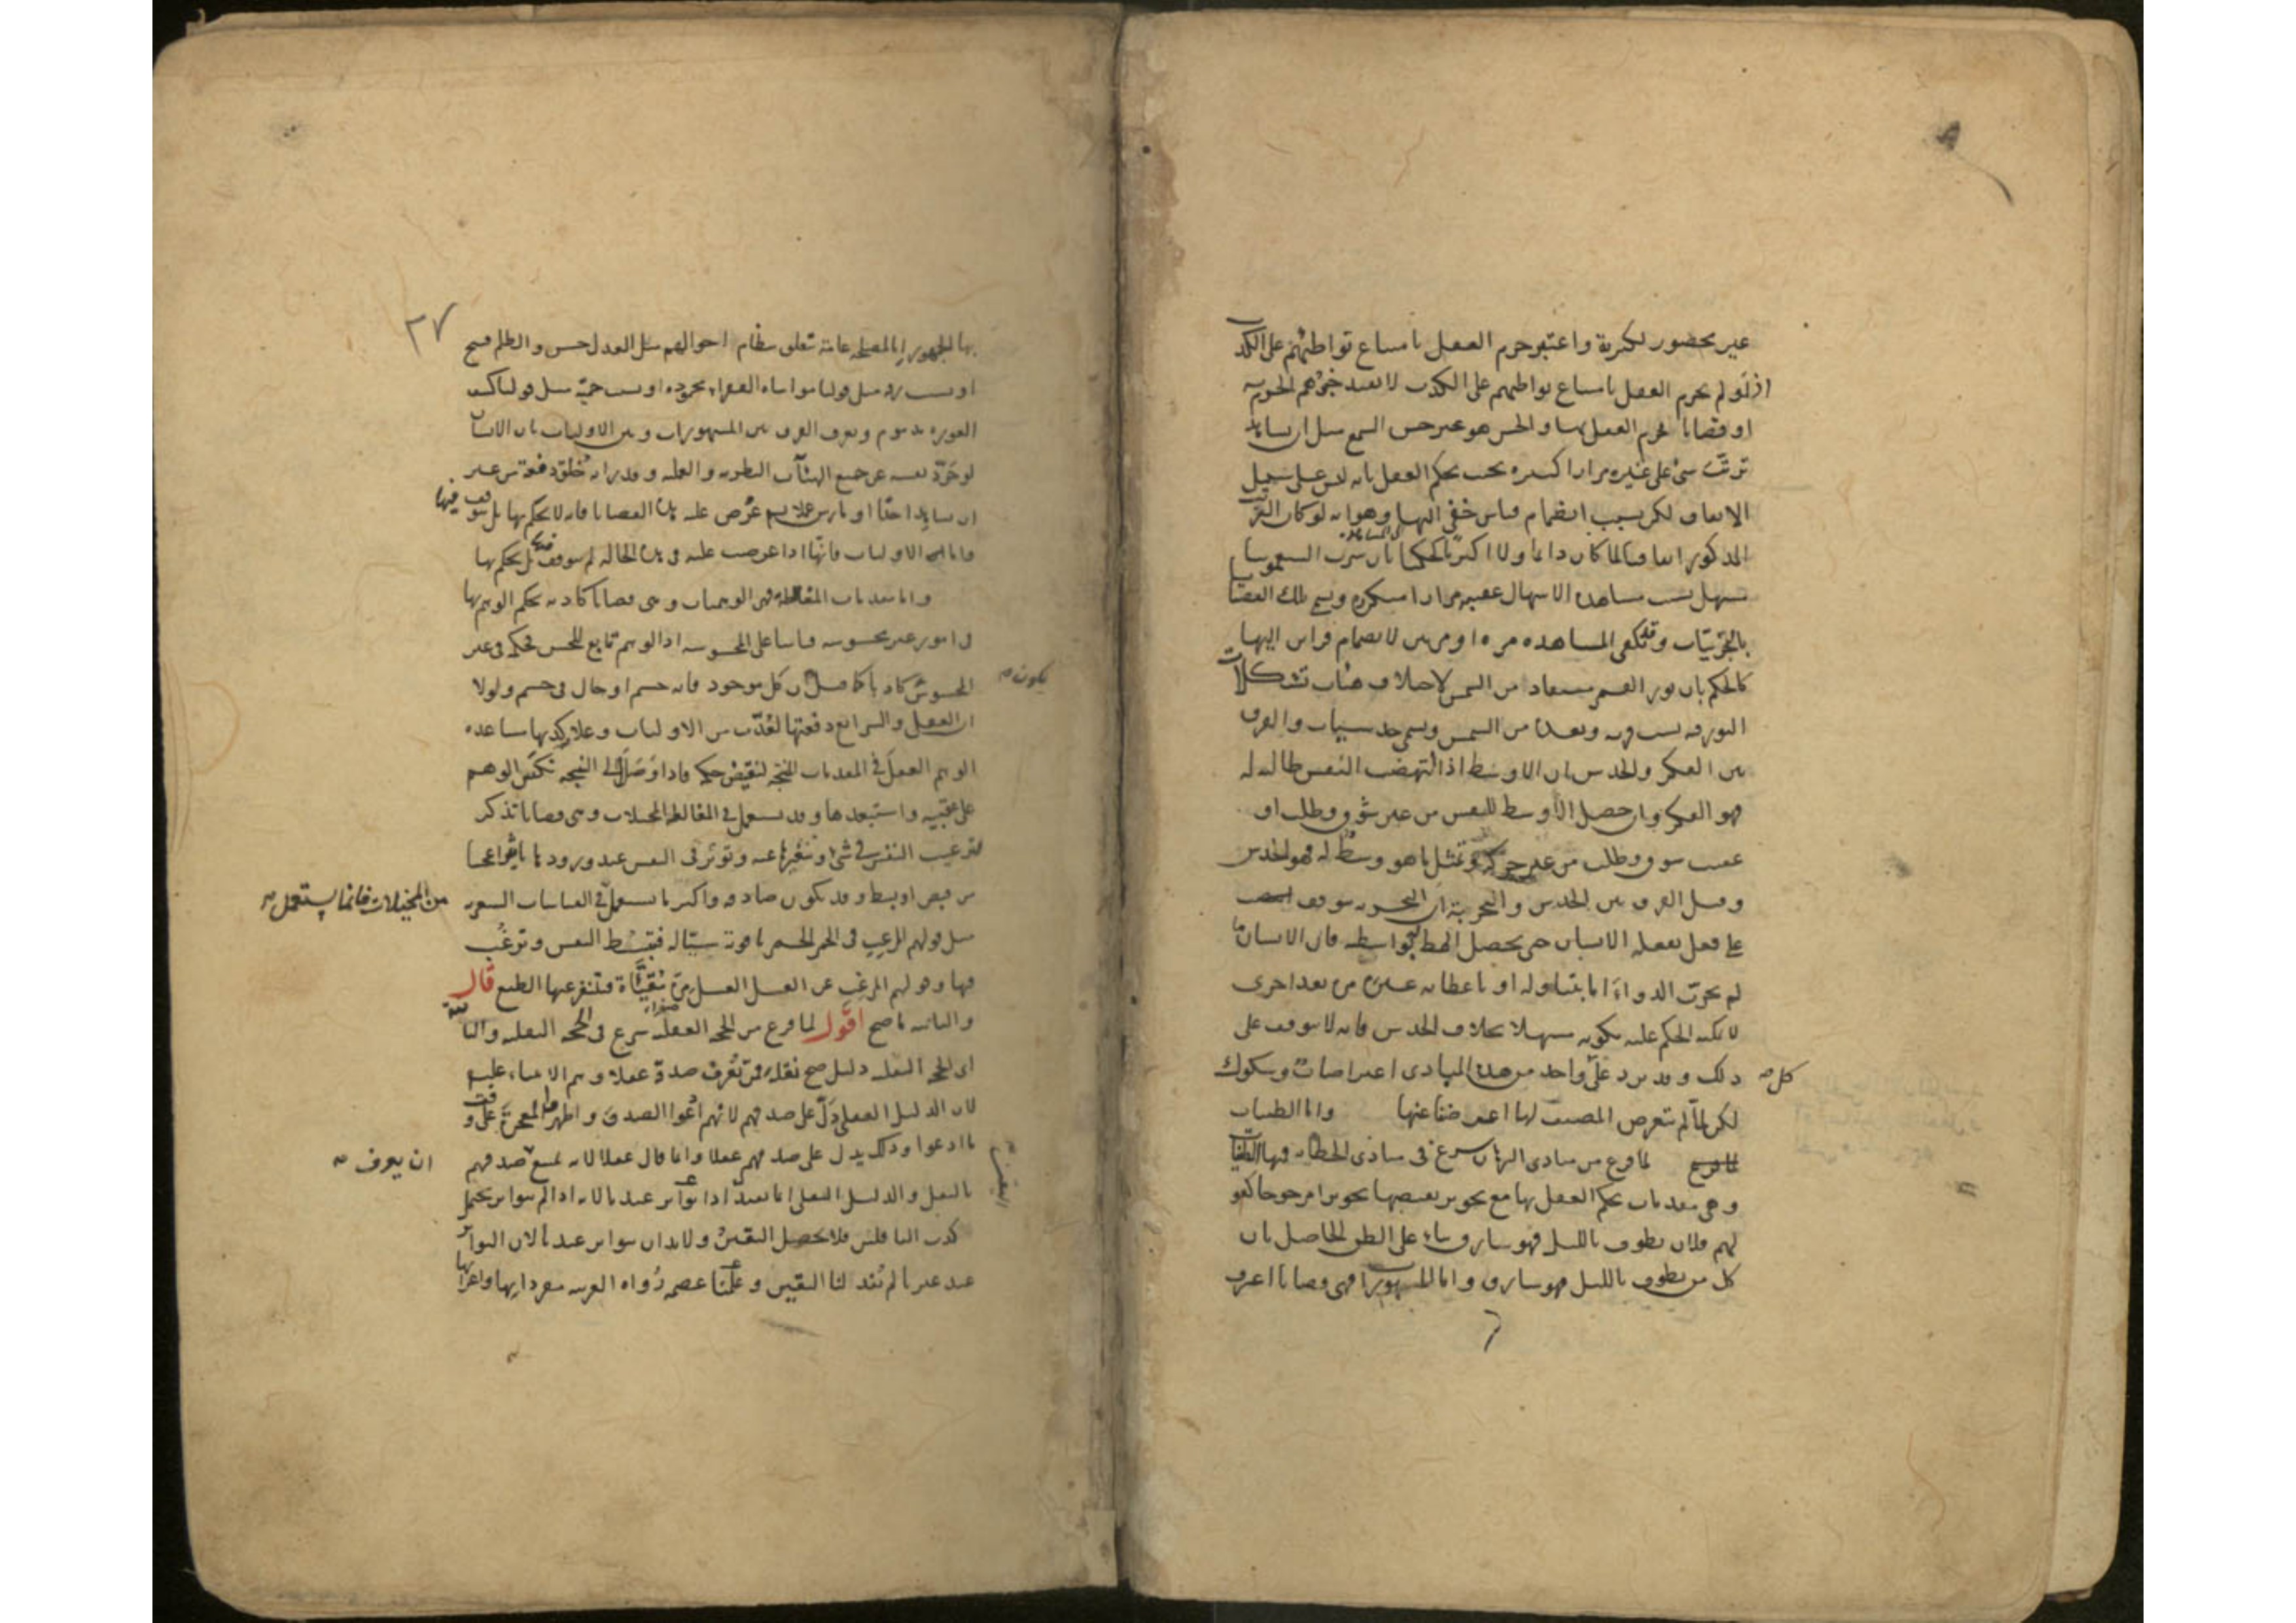 غير محضور لكثرة واعتبر جزم العقل بامتناع تواطئهم على الكذب
اذ لو لم يجزم العقل بامتناع تواطئهم على الكذب لا يفيد خبرهم الجزم به
او قضايا يجزم العقل بها والحس هو غير حس السمع مثل ان يشاهد
ترتب شئ على غيره مرارا كثيره بحيث يحكم العقل بانه ليس على سبيل
الاتفاق لكن بسبب انضمام قياس خفي اليها وهو انه لو كان الترتب
المذكور اتفاقيا لما كان دائما ولا اكثريا كالحكم بان شرب السقمونيا
مسهل بسبب مشاهده الاسهال عقيبه مرارا متكرره ويسمى تلك القضايا
بالمجربات وقد تكفى المشاهده مره او مرتين لانضمام قراين اليها
كالحكم بان نور القمر مستفاد من الشمس لاختلاف هيئات تشكلات
النور فيه بسبب قربه وبعده من الشمس ويسمى حدسيات والفرق
بين الفكر والحدس ان الاوسط اذا انتهضت النفس طالبه له
فهو الفكر وان حصل الاوسط للنفس من غير شوق وطلب او
عقيب شوق وطلب من غير حركه وتمثل ما هو وسط له فهو الحدس
وقيل الفرق بين الحدس والتجربة ان التجربه يتوقف
على فعل يفعله الانسان حتى يحصل المطلوب بواسطه فان الانسان ما
لم يجرب الدواء اما بتناوله او باعطائه غيره مره بعد اخرى
لا يمكنه الحكم عليه بكونه مسهلا بخلاف الحدس فانه لا يتوقف على
ذلك وقد يرد على واحد من هذه المبادى اعتراضات وشكوك
كل
لكن لما لم يتعرض المصنف لها اعرضنا عنها واما الظنيات
لما فرغ من مبادى البرهان شرع فى مبادى الخطابه فمنها الظنيات
وهى مقدمات يحكم العقل بها مع تجويز نقيضها تجويزا مرجوحا كقو
لهم فلان يطوف بالليل فهو سارق بناء على الظن الحاصل بان
كل من يطوف بالليل فهو سارق واما المشهورات فهى قضايا اعترف
٢٧
بها الجمهور اما لمصلحة عامة تتعلق بنظام احوالهم مثل العدل حسن والظلم قبيح
او بسبب رقه مثل قولنا مواساه الفقراء محموده او بسبب حمية مثل قولنا كشف
العوره مذموم ويعرف الفرق بين المشهورات وبين الاوليات بان الانسان
لو جرد نفسه عن جميع الهيئات النظريه والعمليه وقدر انه خلق دفعة من غير
ان شاهد احدا او مارس عملا ثم عرض عليه هذه القضايا فانه لا يحكم بها بل يتوقف فيها
واما الاوليات فانها اذا عرضت عليه فى هذه الحاله لم يتوقف فيها بل يحكم بها
واما مقدمات المغالطة فهى الوهميات وهى قضايا كاذبه يحكم الوهم بها
فى امور غير محسوسه قياسا على المحسوسه اذ الوهم تابع للحس فحكمه فى غير
المحسوس كاذبا كما قيل ان كل موجود فانه جسم او حال فى جسم ولولا
يكون
ان العقل والشرائع دفعتها لعدت من الاوليات وعلامة كذبها مساعده
الوهم العقل فى المقدمات المنتجة لنقيض حكمه فاذا وصل الى النتيجه نكص الوهم
على عقبيه واستبعدها وقد يستعمل فى المغالطه المخيلات وهى قضايا تذكر
لترغيب النفس فى شئ او تنفيرها عنه وتوثر فى النفس عند ورودها تاثيرا عجيبا
من قبض او بسط وقد يكون صادقه واكثر ما يستعمل فى القياسات الشعريه
من المخيلات فانما يستعمل
مثل قولهم للرغيب فى الخمر الخمر ياقوته سيالة فتبسط النفس وترغب
فيها وقولهم المرغب عن العسل العسل مرة مقيأة فتنفر عنها الطبع قال
والثانيه ما صح اقول لما فرغ من الحجه العقليه شرع فى الحجه النقليه والثانيه
اى الحجه النقليه دليل صح نقله ممن عرف صدقه عقلا وهم الانبياء عليهم
لان الدليل العقلى دل على صدقهم لانهم ادعوا الصدق واظهروا المعجزة على وفق
ما ادعوا وذلك يدل على صدقهم عقلا وانما قال عقلا لانه يمتنع صدقهم
ان يعرف
بالنقل والدليل النقلى انما يفيد اذا تواتر عندنا لانه اذا لم يتواتر يحتمل
اليقين
كذب الناقلين فلا يحصل اليقين ولا بد ان يتواتر عندنا لان التواتر
عند غيرنا لم يفد لنا اليقين وعلمنا عصمه رواه العربيه مفرداتها واعرابها